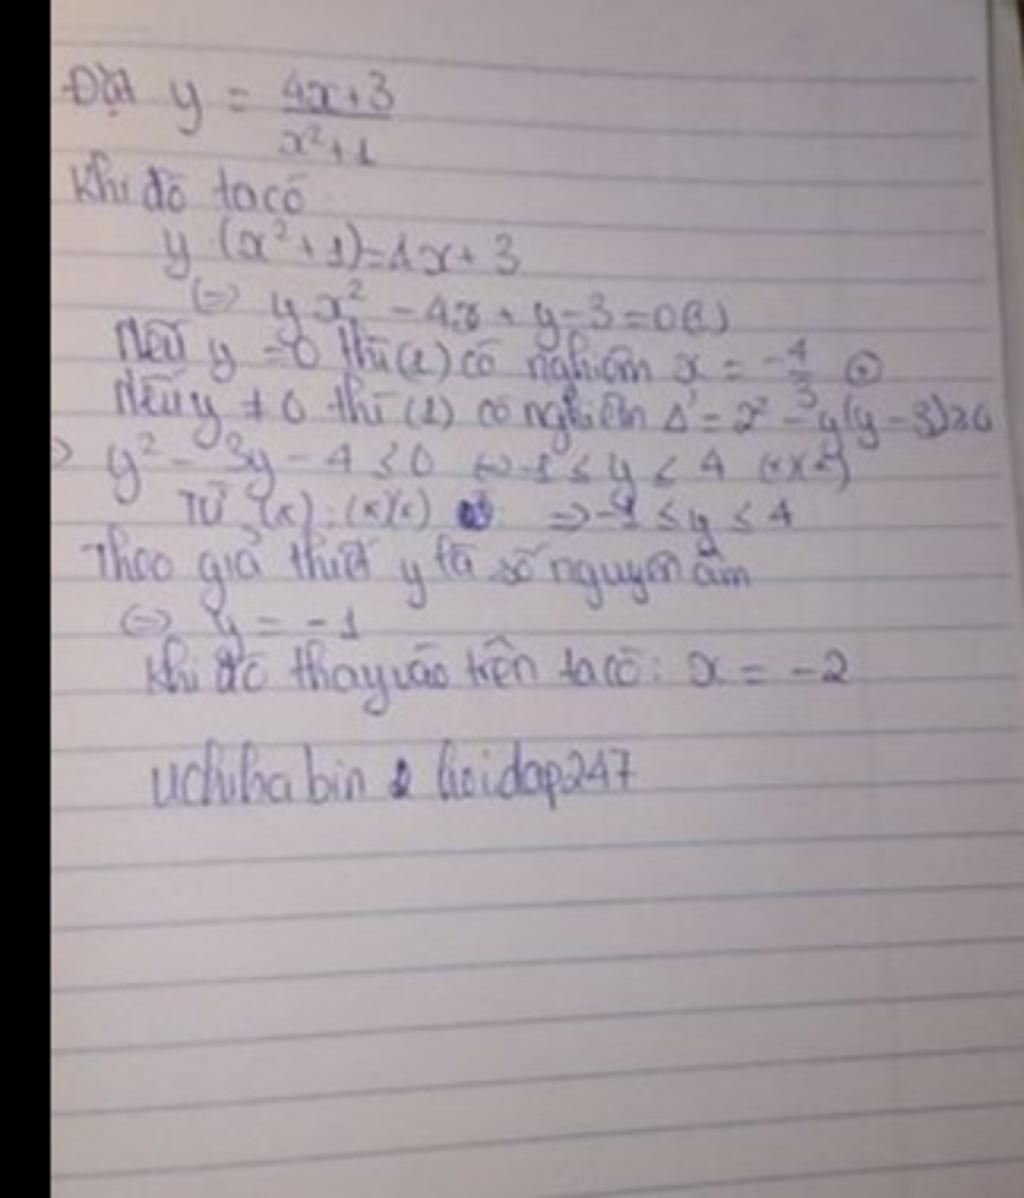 Đặt y = 4x+3 / x²+1
Khi đó ta có
y (x²+1)=4x+3
(=) yx² - 4x + y-3=0(1)
Nếu y = 0 thì (1) có nghiệm x = -4/3 (*)
Nếu y ≠ 0 thì (1) có nghiệm Δ' = 2² - y(y-3)≥0
y² - 3y - 4 ≤ 0 ⇔ -1 ≤ y ≤ 4 (**)
Từ (*) ; (*)(*) ⇒ -1 ≤ y ≤ 4
Theo giả thiết y là số nguyên âm
(=) y = -1
Khi đó thay vào trên ta có: x = -2
uchiha bin hoidap247